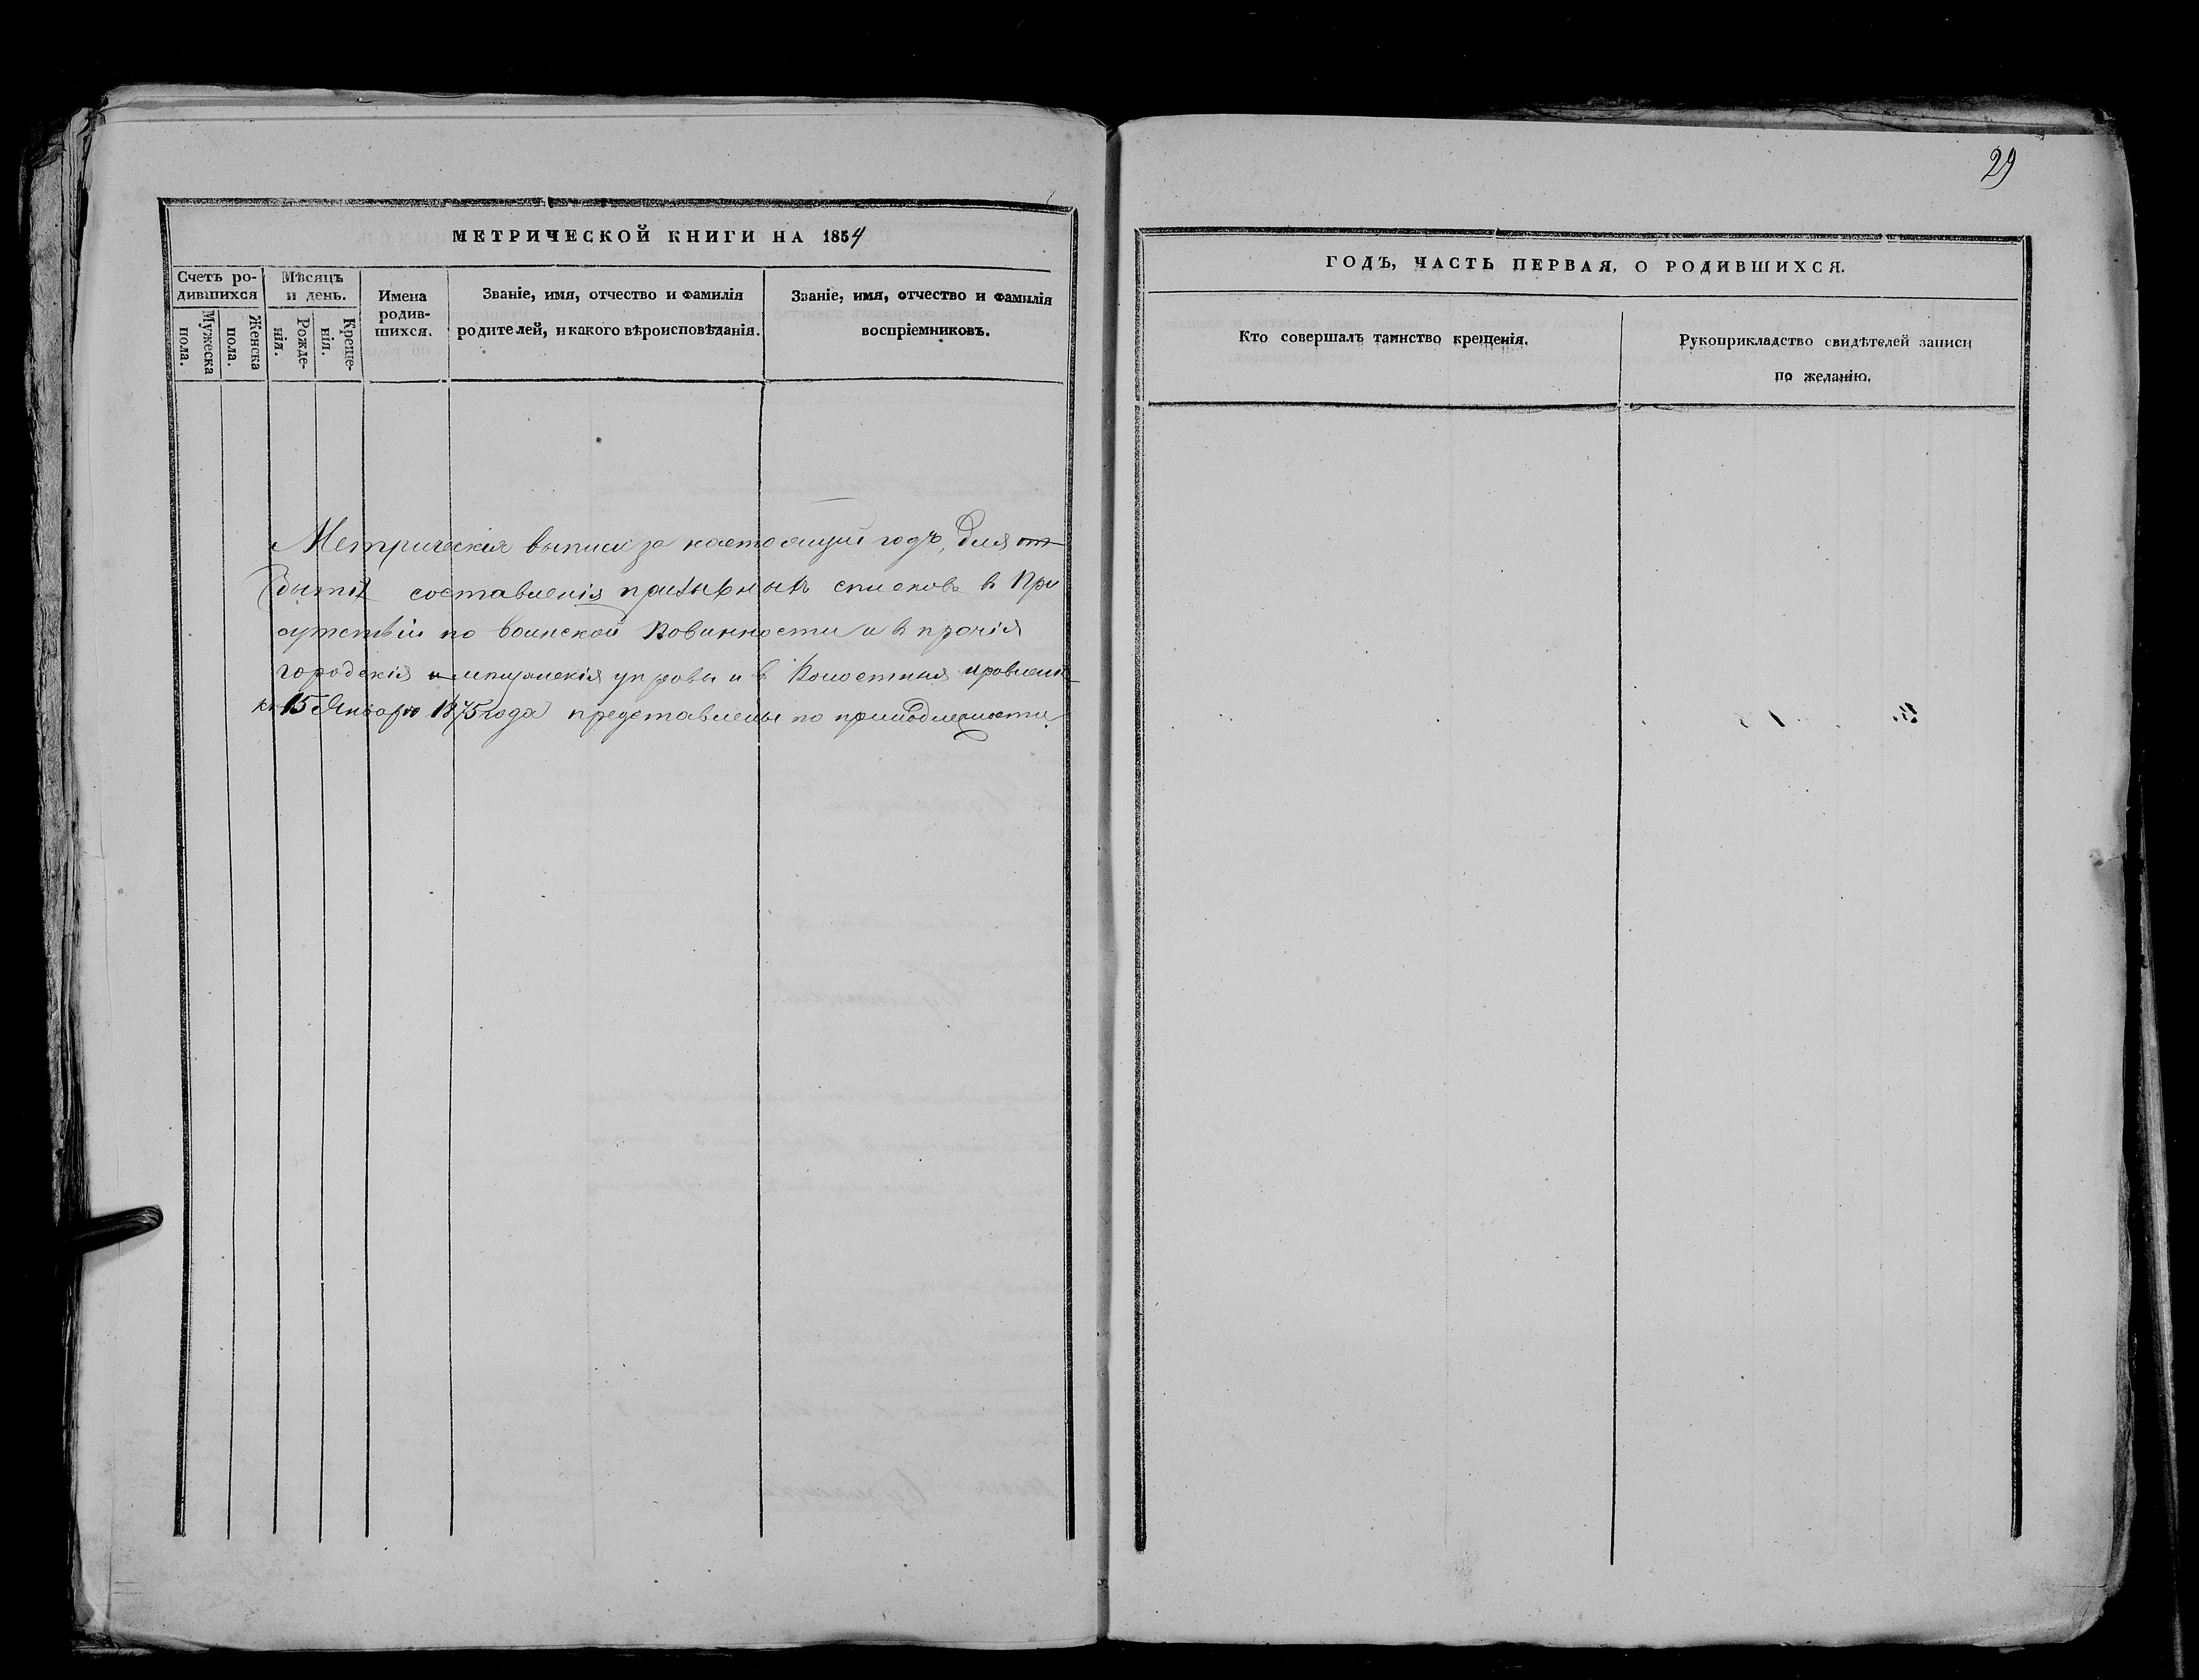 29
МЕТРИЧЕСКОЙ КНИГИ НА 1854
Счетъ ро-
дившихся
Мужеска
пола.
Женска
пола.
Мѣсяцъ
и день.
Рожде-
нія.
Креще-
нія.
Имена
родив-
шихся.
Званіе, имя, отчество и фамилія
родителей, и какого вѣроисповѣданія.
Званіе, имя, отчество и фамилія
воспріемниковъ.
Метрическія выписи за настоящій годъ, для от
бытія составленія призывныхъ списковъ в При
сутствіи по воинской Повинности и в прочія
городскія и мѣщанскія управы и в Волостныя правлені
къ 15 Января 1875 года представлены по принадлежности.
ГОДЪ, ЧАСТЬ ПЕРВАЯ, О РОДИВШИХСЯ.
Кто совершалъ таинство крещенія.
Рукоприкладство свидѣтелей записи
по желанію.